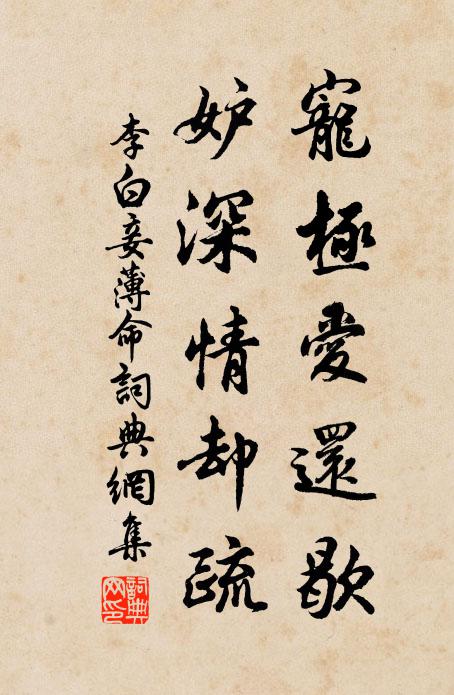 寵極愛還歇
妒深情却疏
李白妾薄命詞典網集
詞典網印